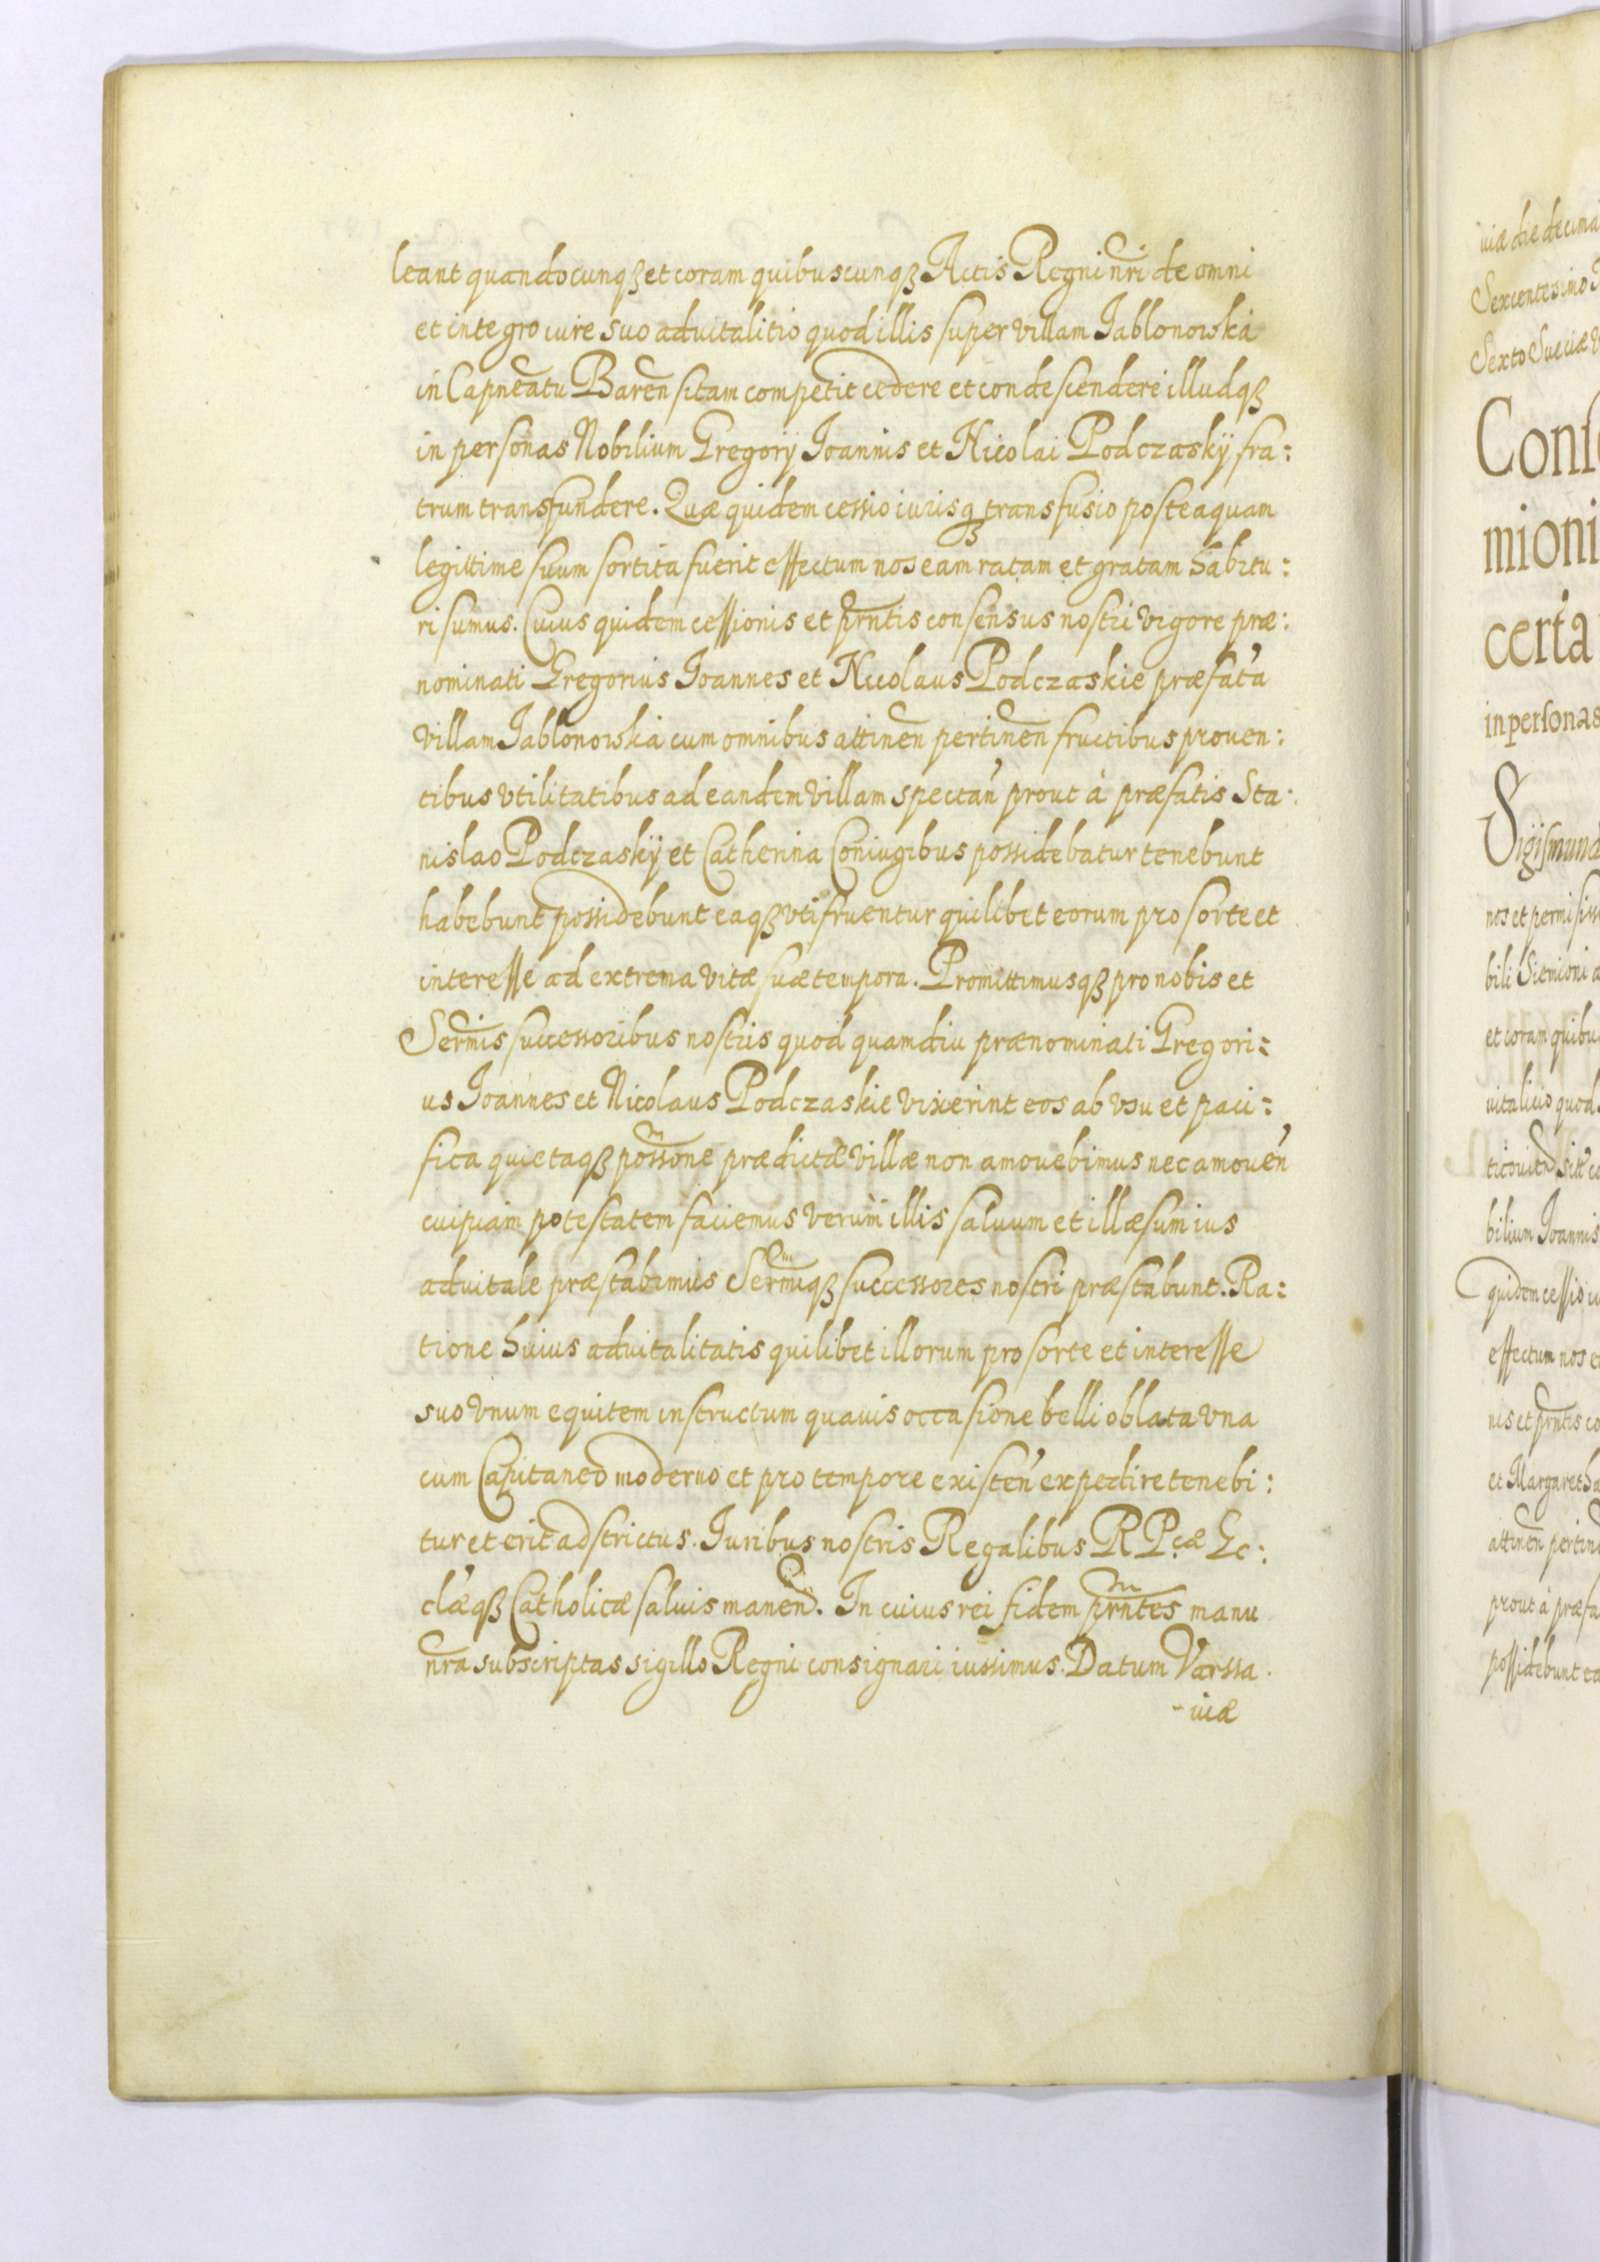 leant quandocunqꝫ et coram quibuscunqꝫ Actis Regni nri de omni
et integro iure suo aduitalitio quod illis super villam Iablonowska
in Capneatu Baren sitam competit cedere et condescendere illudqꝫ
in personas Nobilium Gregorÿ Ioannis et Nicolai Podczaskÿ fra:
trum transfundere. Quæ quidem cessio iurisqꝫ transfusio posteaquam
legittime suum sortita fuerit effectum nos eam ratam et gratam habitu:
ri sumus. Cuius quidem cessionis et prntis consensus nostri vigore præ:
nominati Gregorius Ioannes et Nicolaus Podczaskie præfata
villam Iablonowska cum omnibus attinen pertinen fructibus prouen:
tibus vtilitatibus ad eandem villam spectan prout à præfatis Sta:
nislao Podczaskÿ et Catherina Coniugibus possidebatur tenebunt
habebunt possidebunt eaqꝫ vtifruentur quilibet eorum pro sorte et
interesse ad extrema vitæ suæ tempora. Promittimusqꝫ pro nobis et
Sermis successoribus nostris quod quamdiu prænominati Gregori:
us Ioannes et Nicolaus Podczaskie vixerint eos ab vsu et paci:
fica quietaqꝫ possone prædictæ villæ non amouebimus nec amouen
cuipiam potestatem faciemus verùm illis saluum et illæsum ius
aduitale præstabimus Sermiqꝫ successores nostri præstabunt. Ra:
tione huius aduitalitatis quilibet illorum pro sorte et interesse
suo vnum equitem instructum quauis occasione belli oblata vna
cum Capitaneo moderno et pro tempore existen expedire tenebi:
tur et erit adstrictus. Iuribus nostris Regalibus R Pcæ Ec:
clæqꝫ Catholicæ saluis manen. In cuius rei fidem prntes manu
nra subscriptas sigillo Regni consignari iussimus. Datum Varssa.
-uiæ
uiæ die decima
Sexcentesimo
Sexto Sueciæ
mioni
certa
in personas
Sigismund
nos et
bili Siemioni
et coram
quod
bilium Ioannis
quidem cessio
effectum nos
nis et prntis
et Margaretha
attinen
prout à
possidebunt